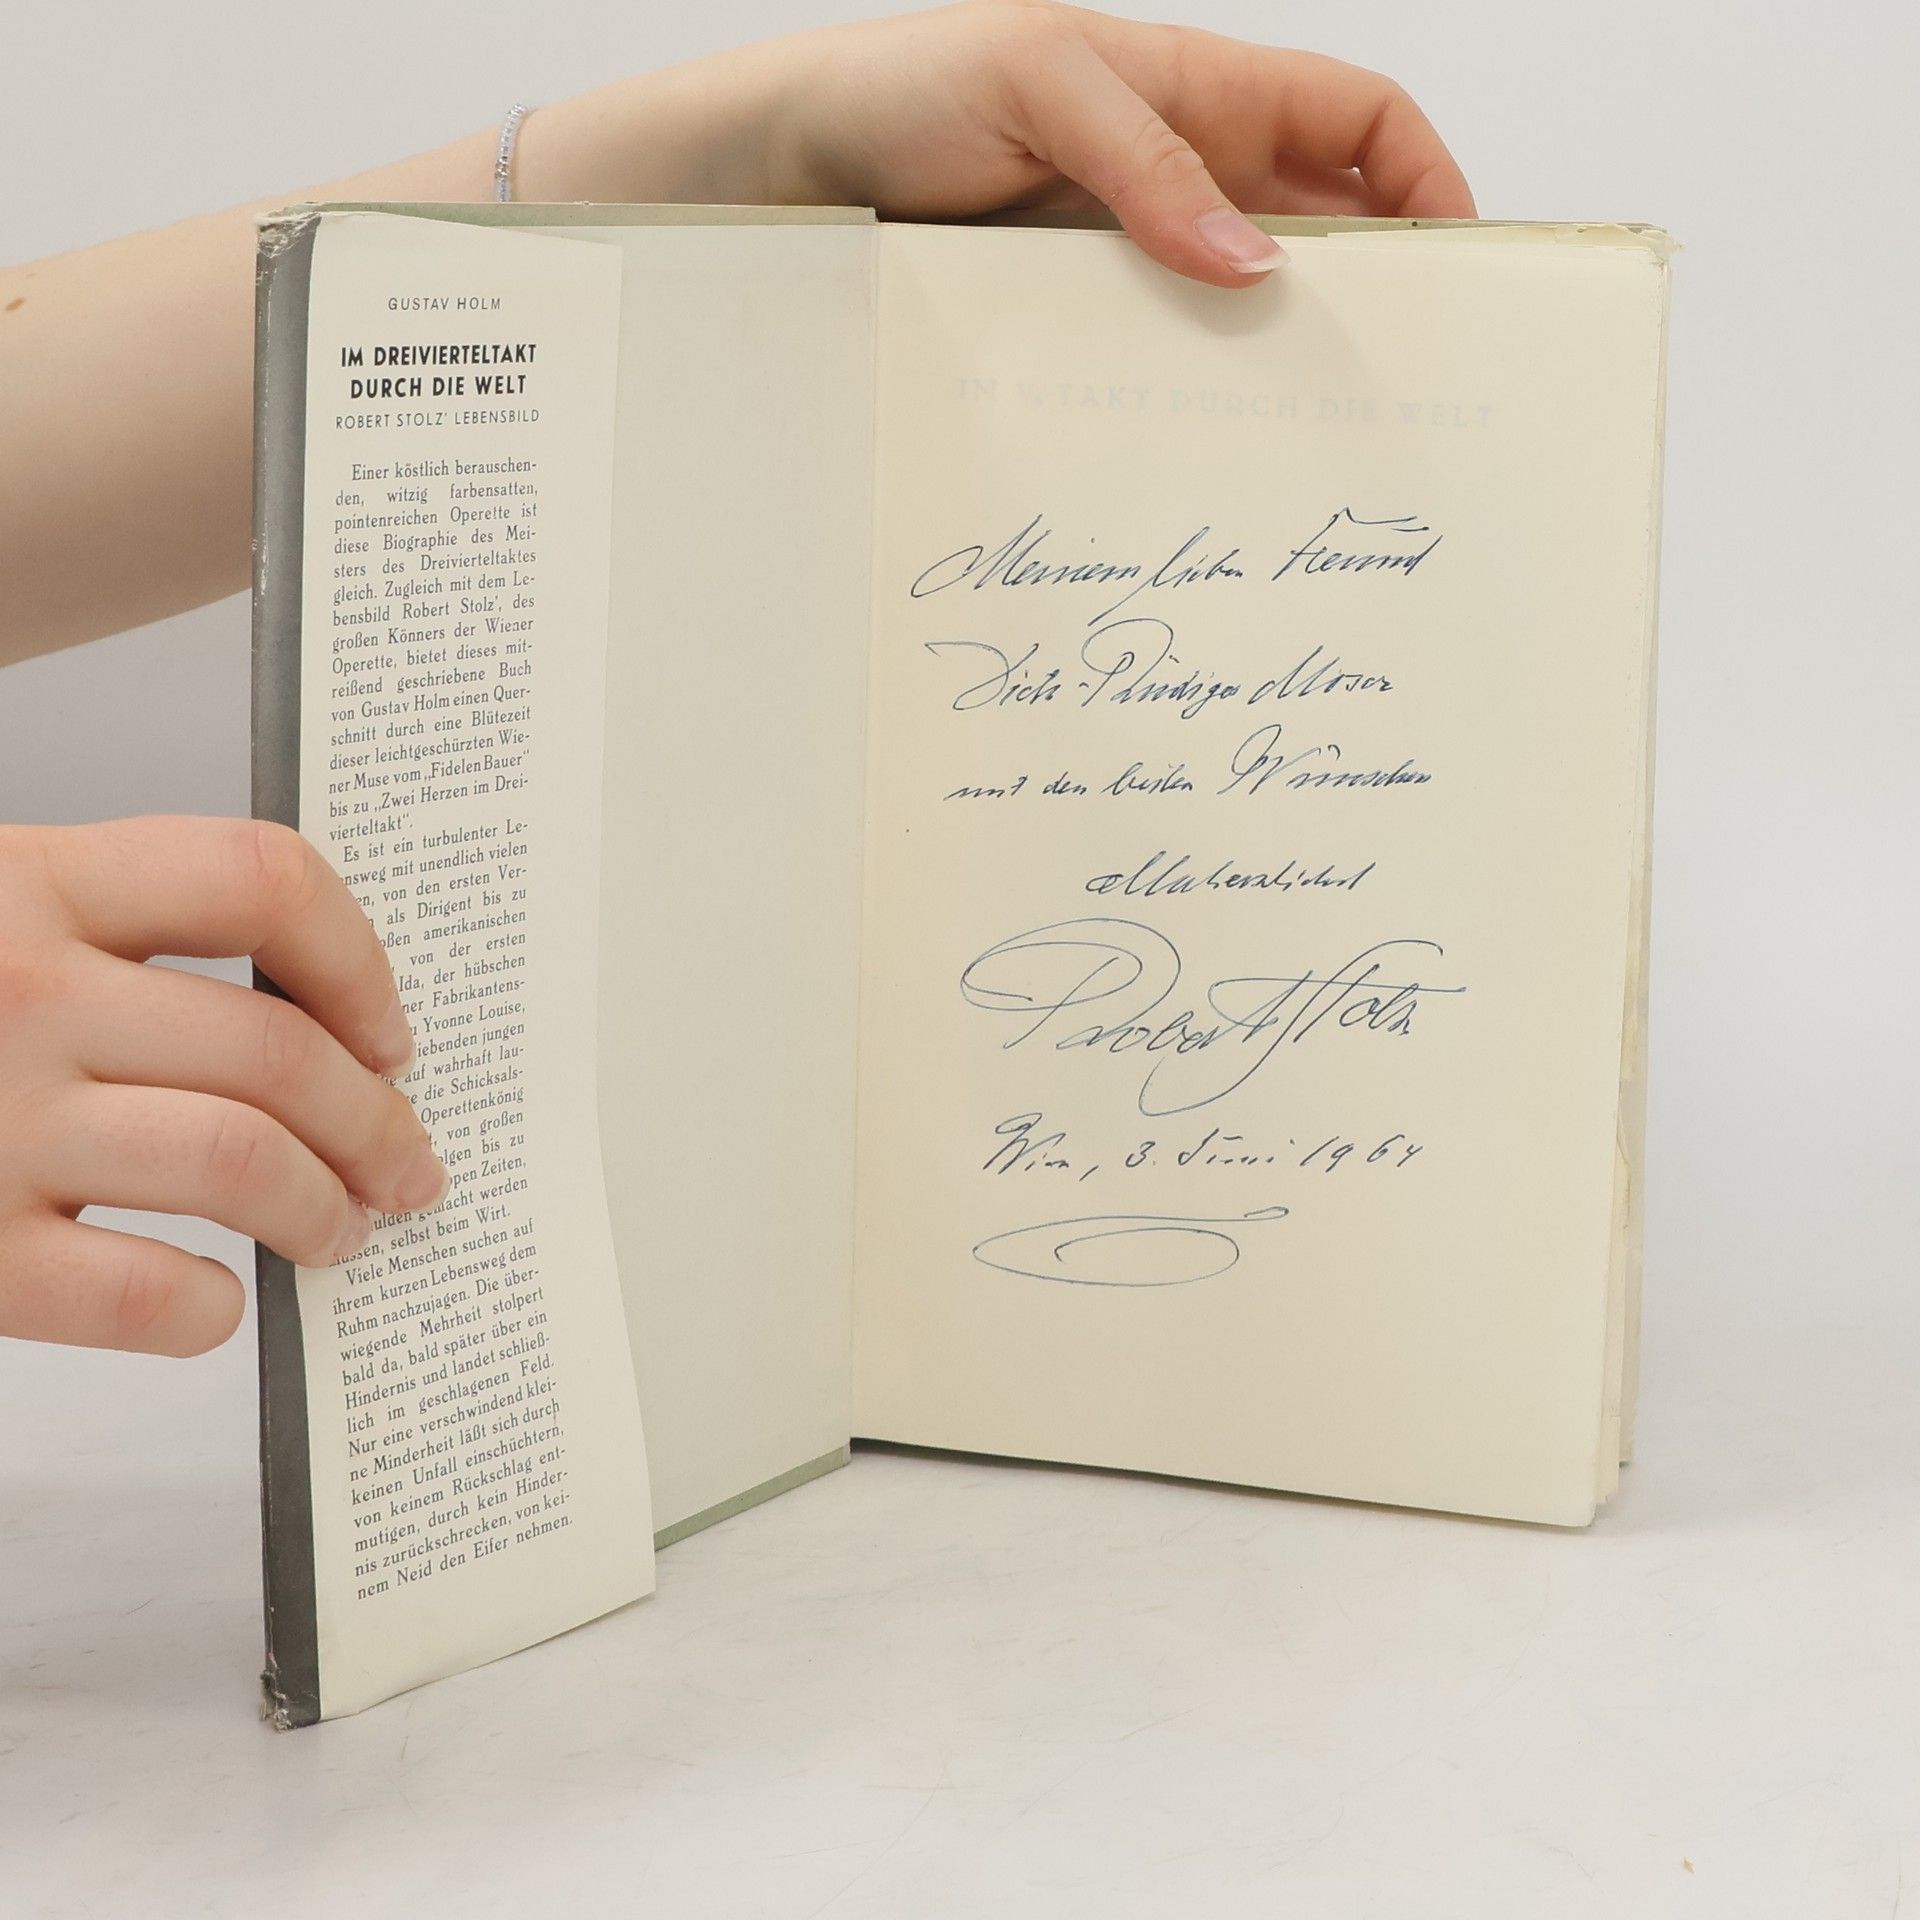 GUSTAV HOLM
IM DREIVIERTELTAKT
DURCH DIE WELT
ROBERT STOLZ' LEBENSBILD
Einer köstlich berauschen-
den, witzig farbensatten,
pointenreichen Operette ist
diese Biographie des Mei-
sters des Dreivierteltaktes
gleich. Zugleich mit dem Le-
bensbild Robert Stolz', des
großen Könners der Wiener
Operette, bietet dieses mit-
reißend geschriebene Buch
von Gustav Holm einen Quer-
schnitt durch eine Blütezeit
dieser leichtgeschürzten Wie-
ner Muse vom „Fidelen Bauer“
bis zu „Zwei Herzen im Drei-
vierteltakt“.
Es ist ein turbulenter Le-
nsweg mit unendlich vielen
en, von den ersten Ver-
als Dirigent bis zu
oßen amerikanischen
, von der ersten
Ida, der hübschen
ner Fabrikantens-
Yvonne Louise,
iebenden jungen
auf wahrhaft lau-
e die Schicksals-
Operettenkönig
, von großen
olgen bis zu
ppen Zeiten,
ulden gemacht werden
müssen, selbst beim Wirt.
Viele Menschen suchen auf
ihrem kurzen Lebensweg dem
Ruhm nachzujagen. Die über-
wiegende Mehrheit stolpert
bald da, bald später über ein
Hindernis und landet schließ-
lich im geschlagenen Feld.
Nur eine verschwindend klei-
ne Minderheit läßt sich durch
keinen Unfall einschüchtern,
von keinem Rückschlag ent-
mutigen, durch kein Hinder-
nis zurückschrecken, von kei-
nem Neid den Eifer nehmen.
IM ¾ TAKT DURCH DIE WELT
Meinem lieben Freund
Rüdiger Moser
mit den besten Wünschen
Allerherzlichst
Robert Stolz
Wien, 3. Juni 1964